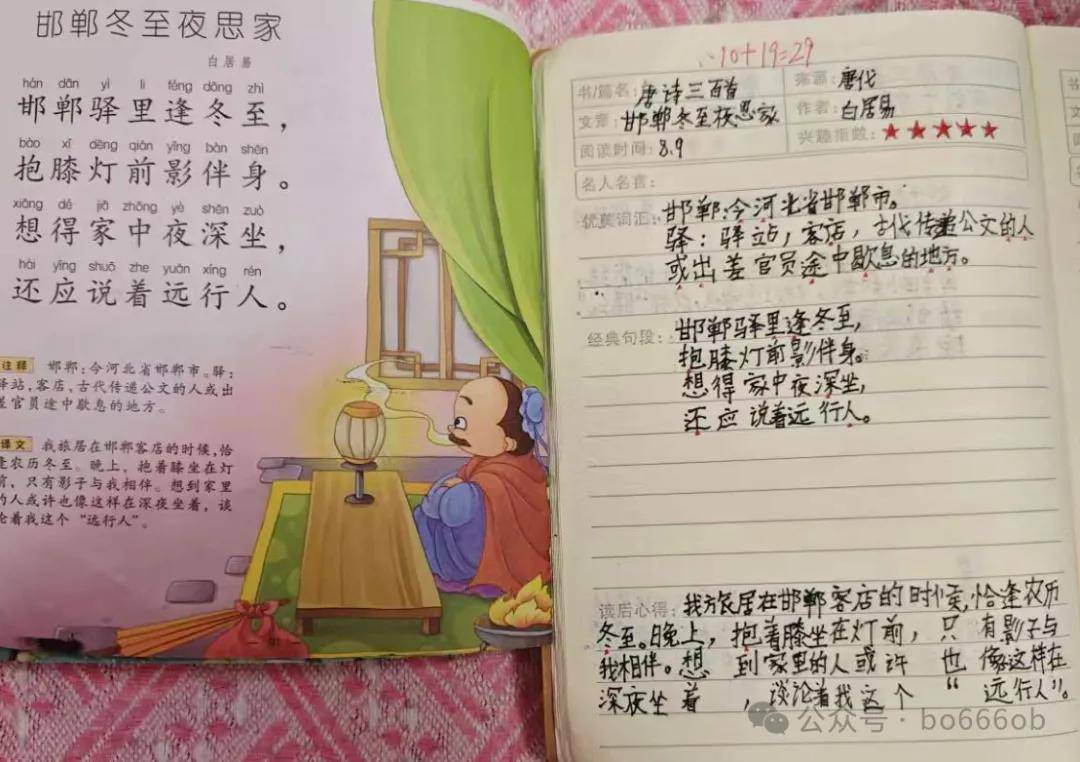 邯郸冬至夜思家
白居易
hán dān yì lǐ féng dōng zhì
邯郸驿里逢冬至，
bào xī dēng qián yǐng bàn shēn
抱膝灯前影伴身。
xiǎng dé jiā zhōng yè shēn zuò
想得家中夜深坐，
hái yīng shuō zhe yuǎn xíng rén
还应说着远行人。
注释 邯郸：今河北省邯郸市。驿：
驿站，客店，古代传递公文的人或出
差官员途中歇息的地方。
译文 我旅居在邯郸客店的时候，恰
逢农历冬至。晚上，抱着膝坐在灯
前，只有影子与我相伴。想到家里
的人或许也像这样在深夜坐着，谈
论着我这个“远行人”。
10+19=29
书/篇名：唐诗三百首
来源：唐代
文章：邯郸冬至夜思家
作者：白居易
阅读时间：8.9
兴趣指数：★★★★★
名人名言：
优美词汇：邯郸：今河北省邯郸市。
驿：驿站，客店，古代传递公文的人
或出差官员途中歇息的地方。
经典句段：邯郸驿里逢冬至，
抱膝灯前影伴身。
想得家中夜深坐，
还应说着远行人。
读后心得：我旅居在邯郸客店的时候，恰逢农历
冬至。晚上，抱着膝坐在灯前，只有影子与
我相伴。想到家里的人或许也像这样在
深夜坐着，谈论着我这个“远行人”。
公众号·bo666ob